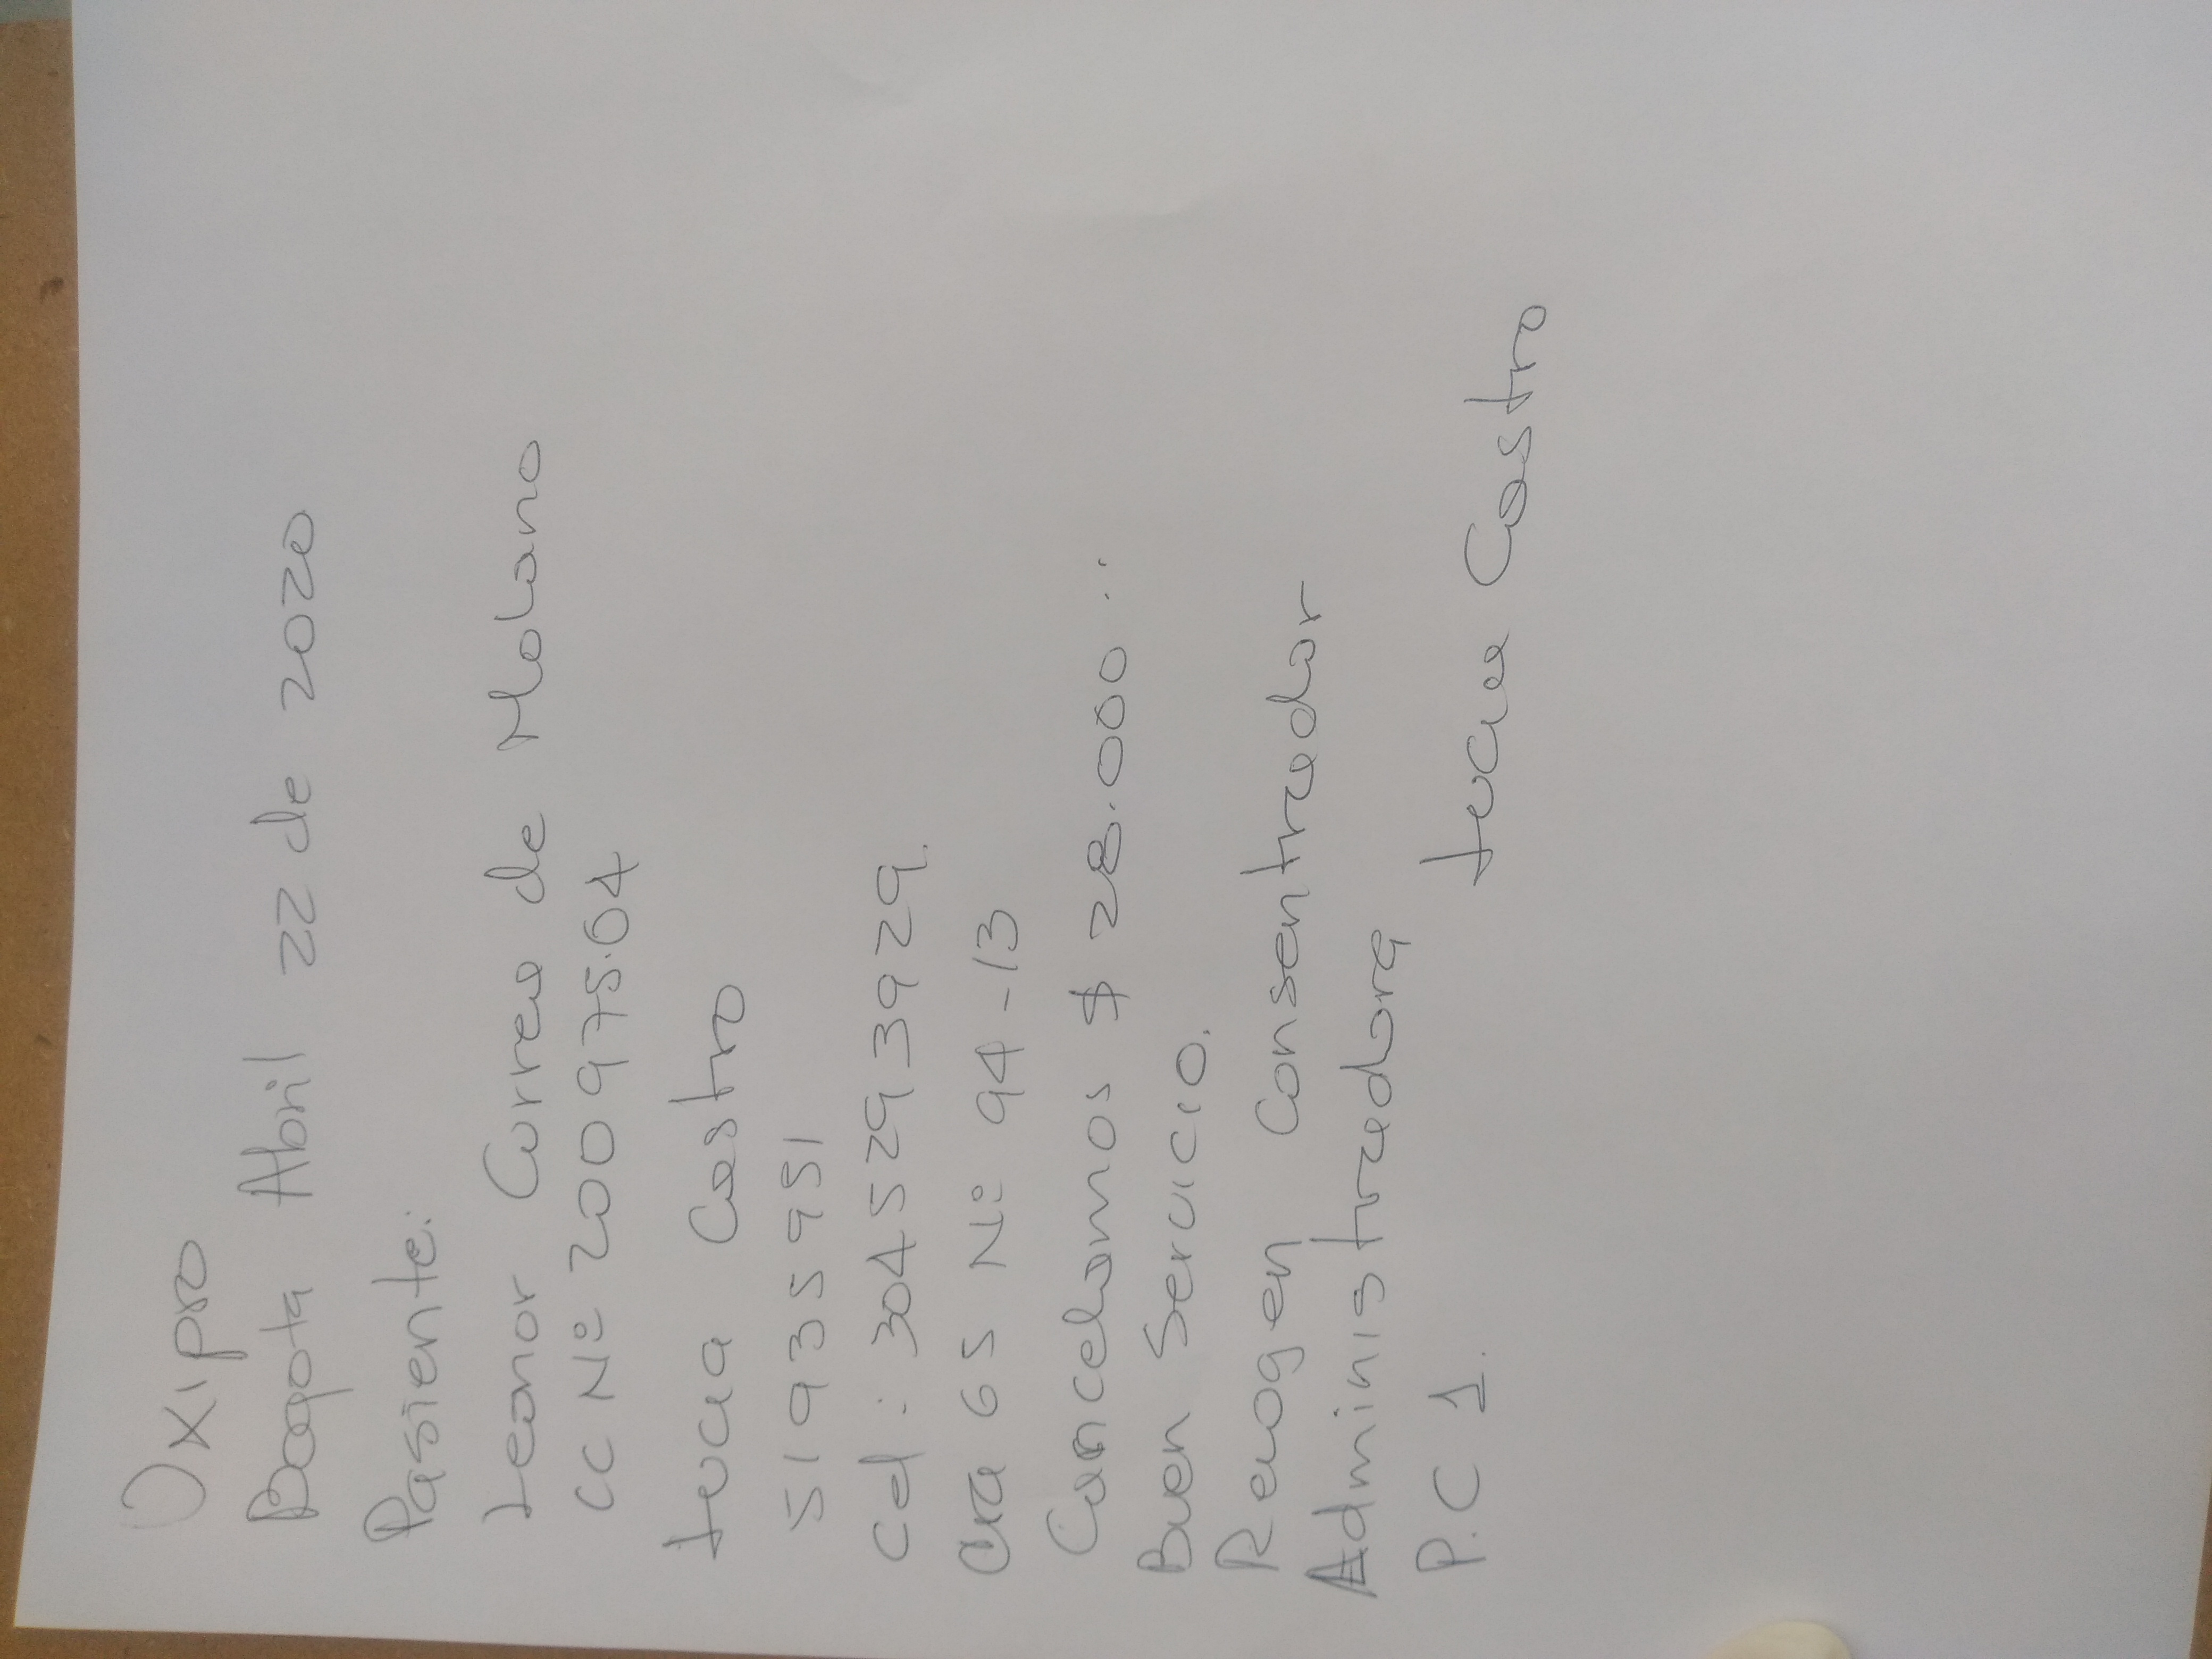 Oxipro
Bogota Abril 22 de 2020
Pasiente:
Leonor Correa de Molano
CC Nº 200975.04
Lucia Castro
51935951
Cel: 3045293929.
Cra 65 Nº 94-13
Cancelamos $ 28.000..
Buen Servicio.
Recogen Consentrador
Administradora
P.C 1.
Lucia Castro